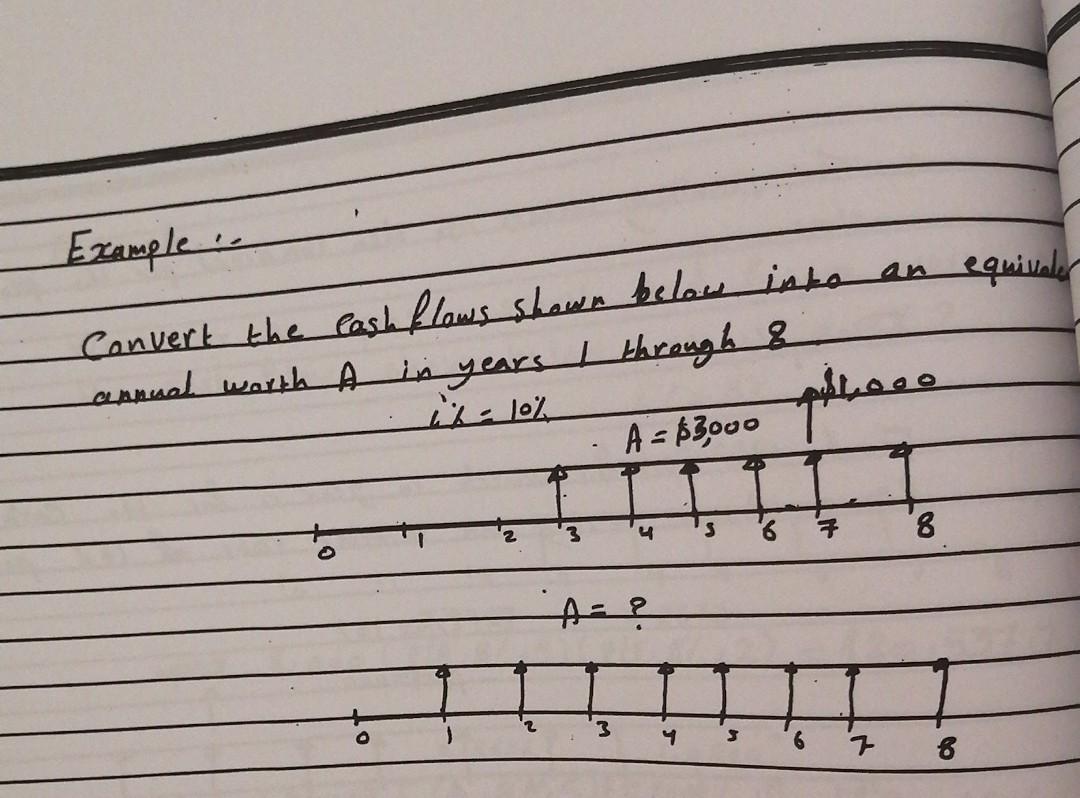 Example :-
Convert the Cash flows shown below into an equivale
annual worth A in years 1 through 8
i% = 10%
$1,000
A = $3,000
0 1 2 3 4 5 6 7 8
A = ?
0 1 2 3 4 5 6 7 8